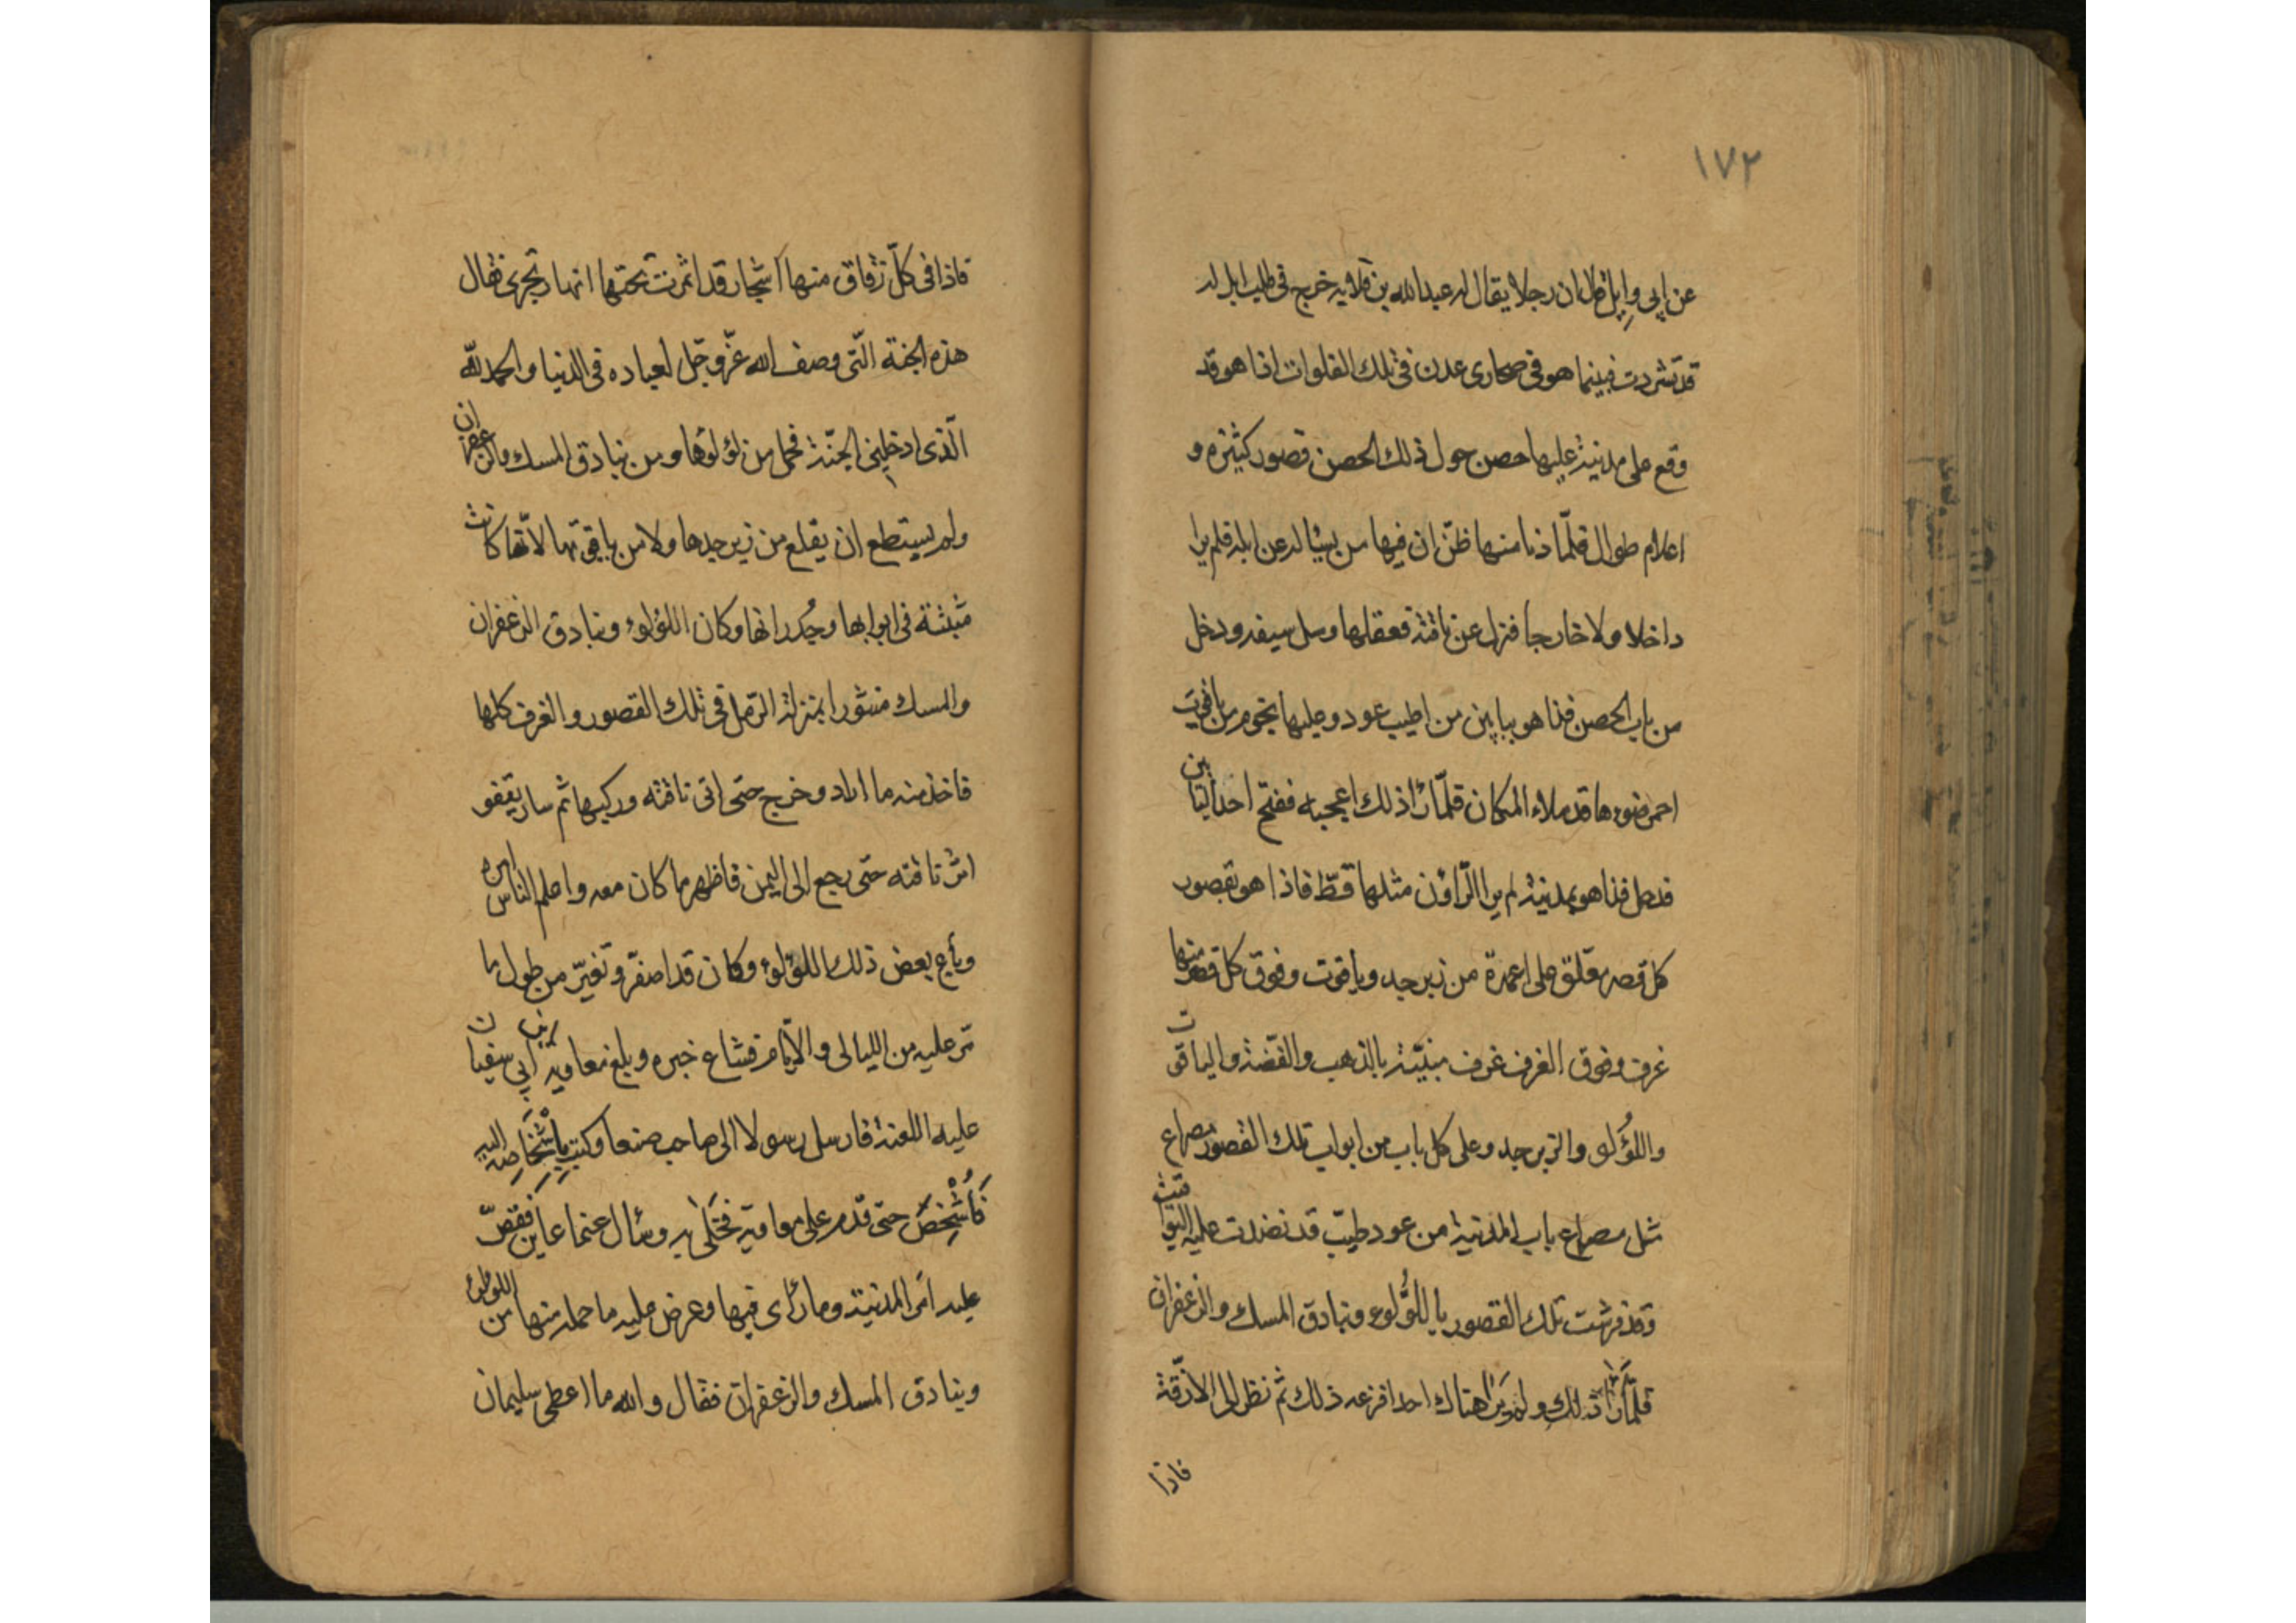 ١٧٢
عن ابى وايل قال ان رجلا يقال له عبد الله بن قلابه خرج فى طلب ابل له
قد تشردت فبينما هو فى صحارى عدن فى تلك الفلوات اذا هو قد
وقع على مدينة عليها حصن حول ذلك الحصن قصور كثيره و
اعلام طوال فلمّا دنا منها ظنّ ان فيها من يسئاله عن ابله فلم يرا
داخلا ولا خارجا فنزل عن ناقته فعقلها وسل سيفه ودخل
من باب الحصن فاذا هو ببابين من اطيب عود وعليها نجوم من ياقوت
احمر ضوءها قد ملاء المكان فلمّا راا ذلك اعجبه ففتح احد البابين
فدخل فاذا هو بمدينة لم يرا الرّاؤن مثلها قطّ فاذا هو بقصور
كل قصر معلق على اعمدة من زبرجد وياقوت وفوق كل قصر منها
غرف وفوق الغرف غرف مبنيّة بالذهب والفضّة والياقوت
واللؤلؤ والزبرجد وعلى كل باب من ابواب تلك القصور مصراع
مثل مصراع باب المدينة من عود طيّب قد نضدت عليه اليواقيت
وقد فرشت تلك القصور باللؤلوء وبنادق المسك والزعفران
فلمّا راا ذلك ولم يرا هناك احدا افزعه ذلك ثم نظر الى الازقّة
فاذا
فاذا فى كلّ زقاق منها اشجار قد اثمرت تحتها انهار تجرى فقال
هذه الجنة الّتى وصف الله عزّ وجّل لعباده فى الدنيا والحمد لله
الّذى ادخلنى الجنّة فحمل من لؤلؤها ومن بنادق المسك والزعفران
ولم يستطع ان يقلع من زبرجدها ولا من ياقوتها لانّها كانت
مثبتة فى ابوابها وجُدرانها وكان اللؤلوء وبنادق الزعفران
والمسك منثورا بمنزلة الرّمل فى تلك القصور والغرف كلها
فاخذ منه ما اراد وخرج حتى اتى ناقته وركبها ثم سار يقفو
اثر ناقته حتى رجع الى اليمن فاظهر ما كان معه واعلم الناس امره
وباع بعض ذلك اللؤلوء وكان قد اصفرّ وتغيّر من طول ما
مّر عليه من الليالى والايّام فشاع خبره وبلغ معاويه ابن ابي سفيان
عليه اللعنة فارسل رسولا الى صاحب صنعا وكتب باشخاصه اليه
فَأُشْخِصَ حتى قدم على معاوية فخلى به وسال عنما عاين فقصّ
عليه امر المدينة وما رأى فيها وعرض عليه ما حمله منها من اللؤلؤ
وبنادق المسك والزعفران فقال والله ما اعطى سليمان